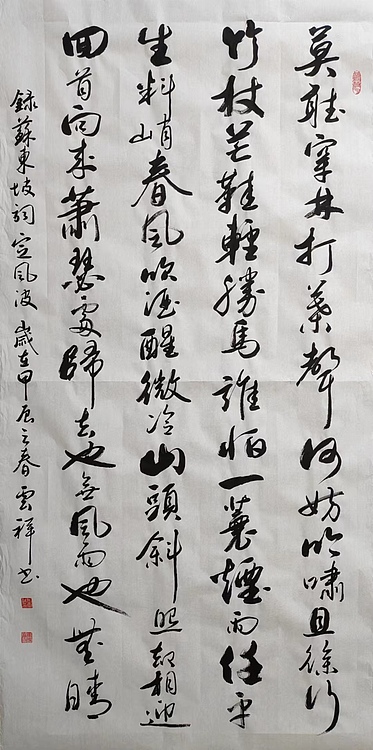 莫聽穿林打葉聲何妨吟嘯且徐行
竹杖芒鞋輕勝馬誰怕一蓑煙雨任平
生料峭春風吹酒醒微冷山頭斜照却相迎
回首向來蕭瑟處歸去也無風雨也無晴
錄蘇東坡詞定風波歲在甲辰之春雲祥書